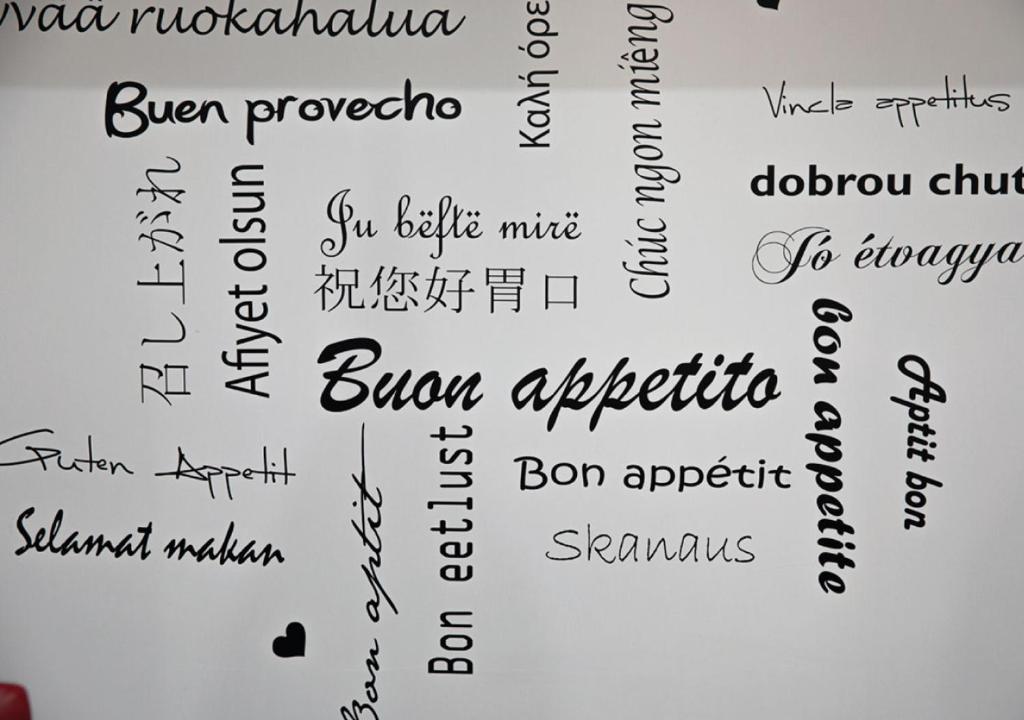 vää ruokahalua
Καλή όρε
Chúc ngon miệng
Buen provecho
Vincla appetitus
召し上がれ
Afiyet olsun
Ju bëftë mirë
dobrou chut
祝您好胃口
Jó étvagya
Buon appetito
bon appetite
Aptit bon
Guten Appetit
Bon aptit
Bon eetlust
Bon appétit
Selamat makan
Skanaus